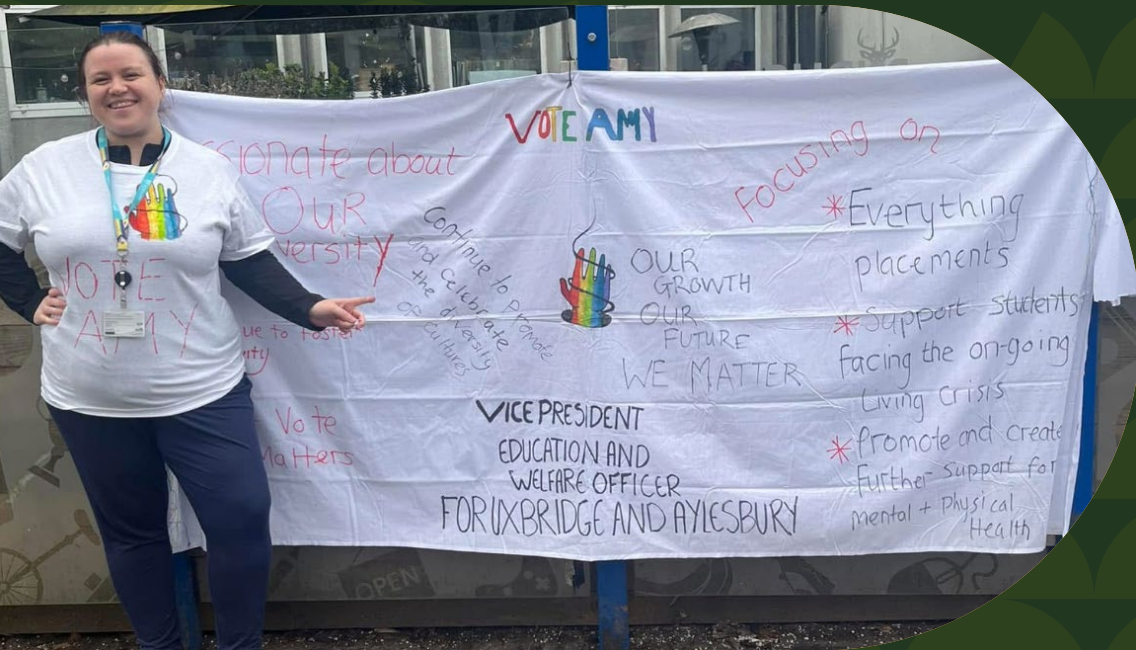 VOTE AMY
VOTE
AMY
ssionate about
OUR
versity
ue to foster
Vote
Matters
Continue to promote
and celebrate
the diversity
OF cultures
OUR
GROWTH
OUR
FUTURE
WE MATTER
VICE PRESIDENT
EDUCATION AND
WELFARE OFFICER
FOR UXBRIDGE AND AYLESBURY
Focusing on
*Everything
placements
*Support students
Facing the on-going
Living Crisis
*Promote and create
Further support for
Mental + Physical
Health
OPEN